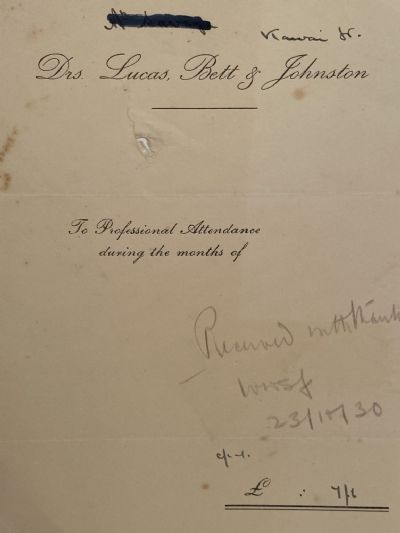 Kawai St.
Drs. Lucas, Bett & Johnston
To Professional Attendance
during the months of
Received with thanks
23/10/30
£ : 7/6